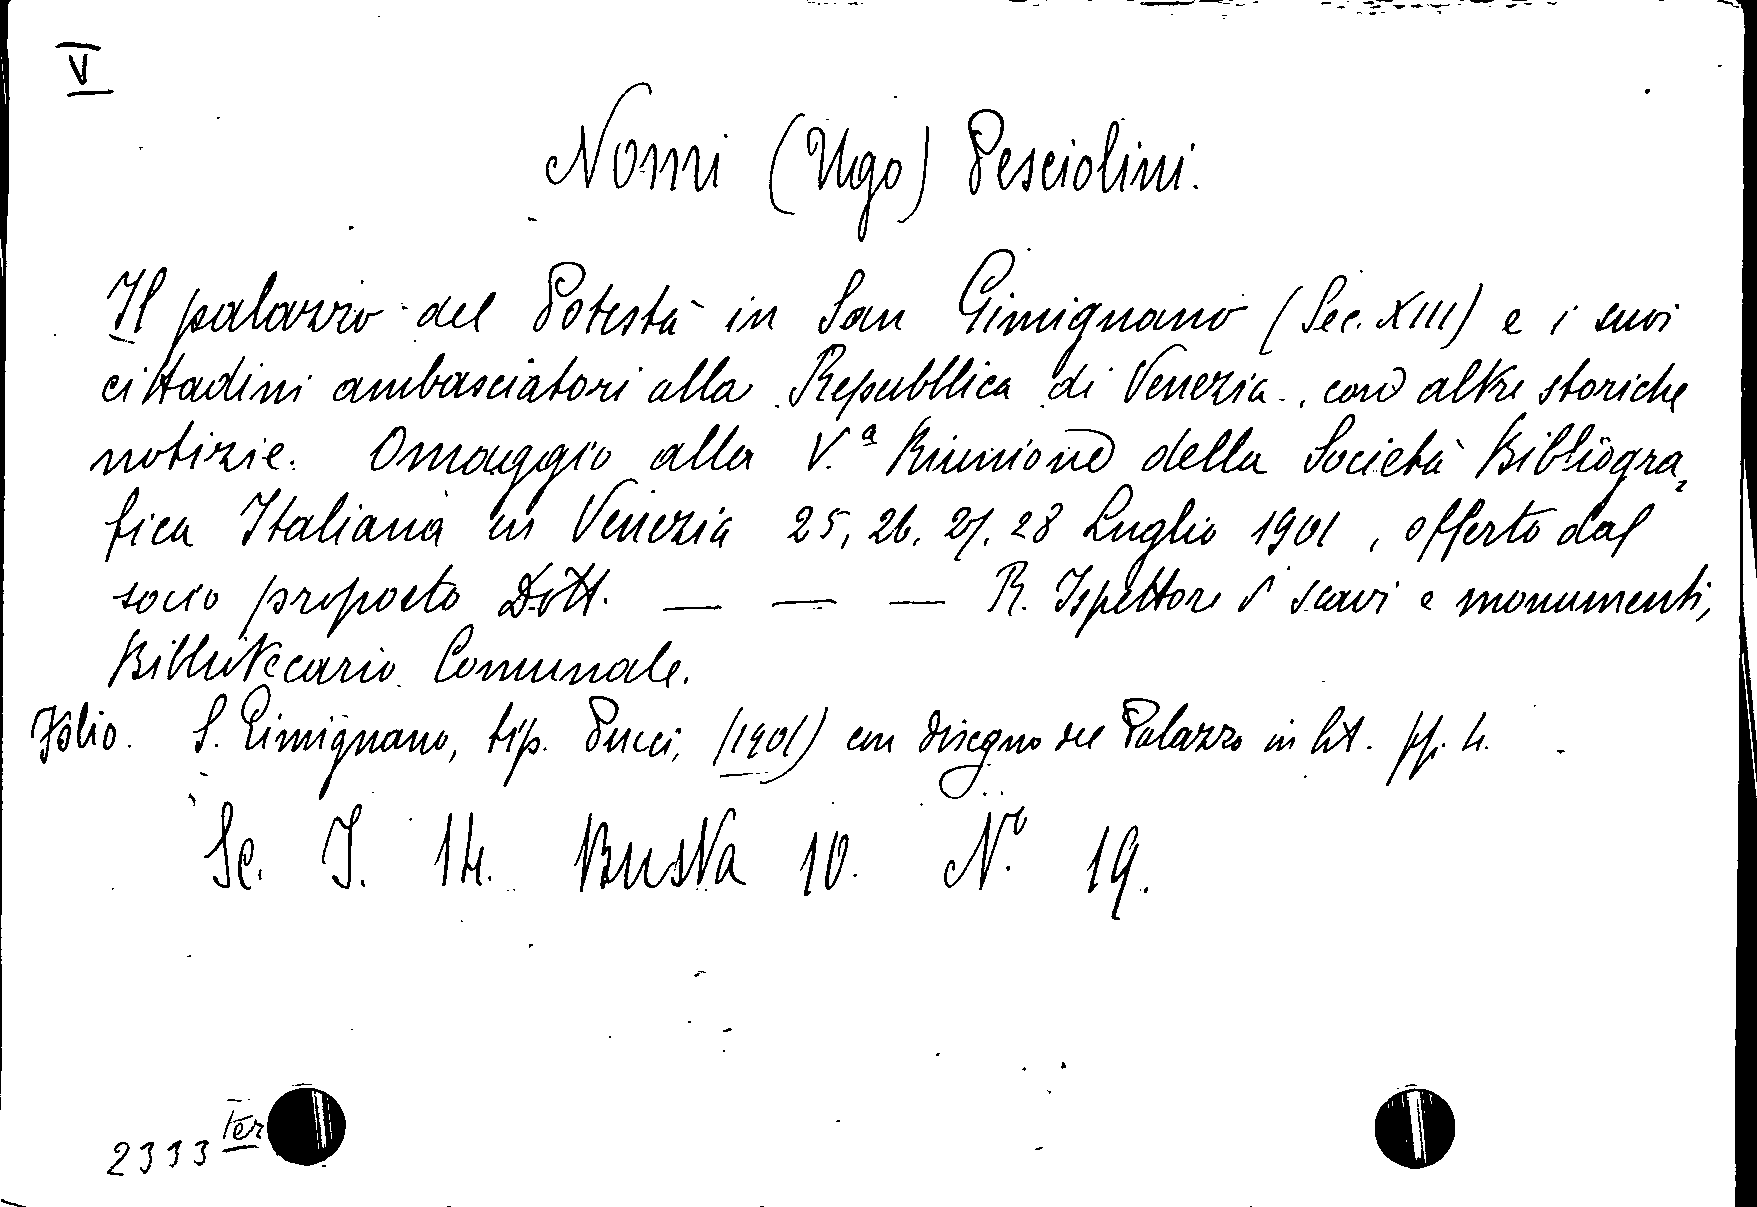 V
Nomi (Ugo) Pesciolini.
Il palazzo del Potestà in San Gimignano (Sec. XIII) e i suoi
cittadini ambasciatori alla Repubblica di Venezia, con altre storiche
notizie. Omaggio alla V.ª Riunione della Società Bibliogra,
fica Italiana in Venezia 25, 26, 27, 28 Luglio 1901, offerto dal
socio proposto Dott. — — — R. Ispettore scavi e monumenti,
Bibliotecario Comunale.
Folio. S. Gimignano, tip. Pucci, (1901) con disegno del Palazzo in lit. pp. 4.
Sc. I. 14. Busta 10. N.º 19.
2333 Ter